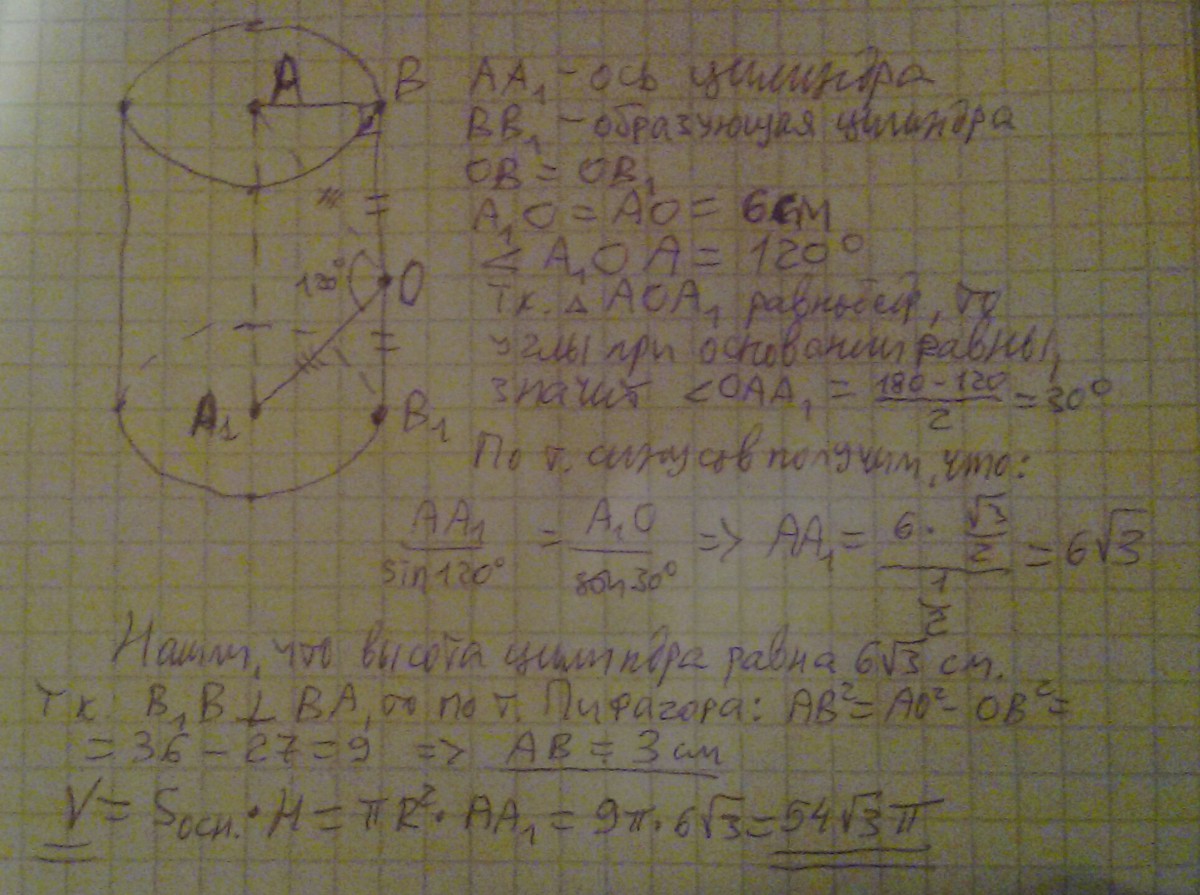 A B
AA₁ - ось цилиндра
BB₁ - образующая цилиндра
OB = OB₁
A₁O = AO = 6см
< A₁OA = 120°
120° O
Тк. △ AOA₁ равнобедр, то
углы при основании равны,
значит <OAA₁ = (180-120)/2 = 30°
A₁ B₁
По т. синусов получим, что:
AA₁/sin120° = A₁O/sin30° => AA₁ = (6·√3/2)/(1/2) = 6√3
Нашли, что высота цилиндра равна 6√3 см.
Тк. B₁B ⊥ BA, то по т. Пифагора: AB² = AO² - OB² =
= 36 - 27 = 9 => AB = 3 см
V = Sосн. · H = πR² · AA₁ = 9π · 6√3 = 54√3 π